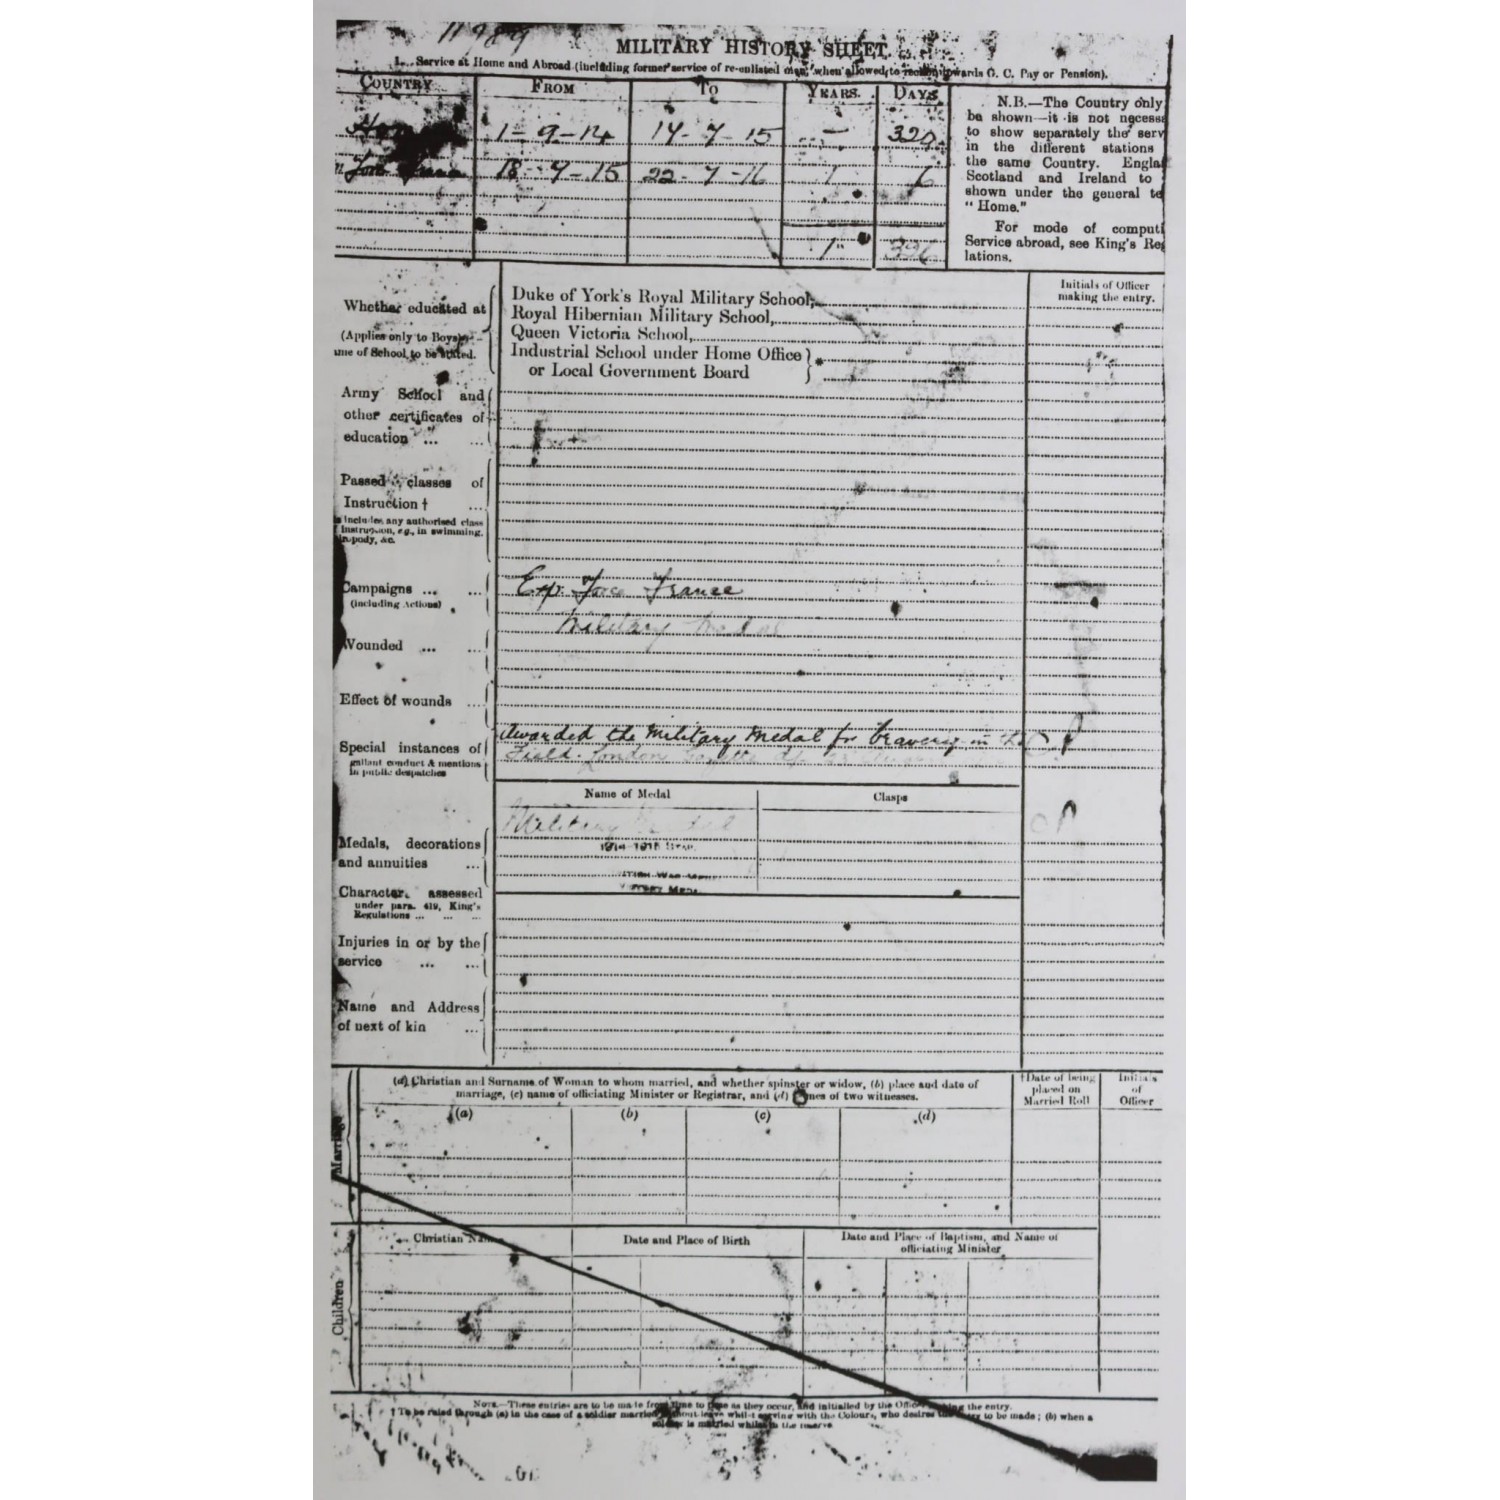 11989
MILITARY HISTORY SHEET.
1. Service at Home and Abroad (including former service of re-enlisted men, when allowed to reckon towards G. C. Pay or Pension).
COUNTRY FROM TO YEARS. DAYS.
1-9-14 17-7-15 - 320
18-7-15 22-7-16 1
1"
N.B.—The Country only
be shown—it is not necess
to show separately the serv
in the different stations
the same Country. Engla
Scotland and Ireland to
shown under the general te
"Home."
For mode of computi
Service abroad, see King's Reg
lations.
Initials of Officer
making the entry.
Whether educated at
(Applies only to Boys)
ume of School, to be stated.
Duke of York's Royal Military School,
Royal Hibernian Military School,
Queen Victoria School,
Industrial School under Home Office
or Local Government Board
Army School and
other certificates of
education ... ...
Passed classes of
Instruction † ...
includes any authorised class
Instruction, e.g., in swimming,
&c.
Campaigns ... ...
(including Actions)
Exp. Force France
Military Medal
Wounded ... ...
Effect of wounds ...
Special instances of
gallant conduct & mentions
in public despatches
Awarded the Military Medal for bravery in the
Field. London Gazette
Name of Medal Clasps
Military Medal
1914-1915 Star.
VICTORY MEDAL
Medals, decorations
and annuities ...
Character assessed
under para. 419, King's
Regulations ... ... ...
Injuries in or by the
service ... ...
Name and Address
of next of kin ...
(a) Christian and Surname of Woman to whom married, and whether spinster or widow, (b) place and date of
marriage, (c) name of officiating Minister or Registrar, and (d) names of two witnesses.
† Date of being
placed on
Married Roll
Initials
of
Officer
(a) (b) (c) (d)
Marriage
Christian Name Date and Place of Birth
Date and Place of Baptism, and Name of
officiating Minister
Children
NOTE.—These entries are to be made from time to time as they occur, and initialled by the Officer making the entry.
† To be ruled through (a) in the case of a soldier married without leave whilst serving with the Colours, who desires the entry to be made; (b) when a
soldier is married whilst in the reserve.